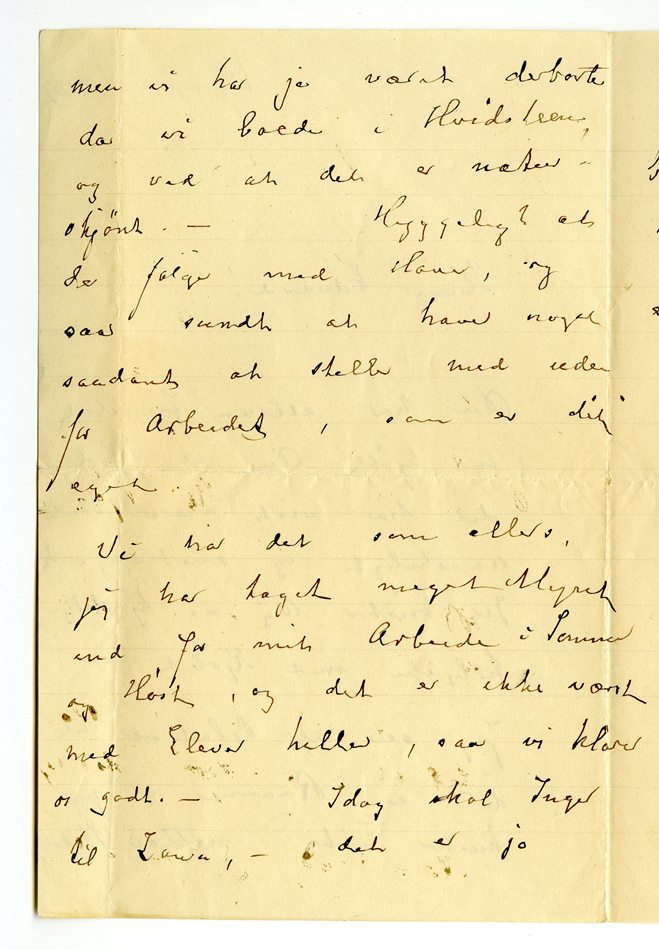 men vi har jo været derborte
da vi boede i Hvidsteen,
og ved at det er natur-
skjönt. — Hyggeligt at
der fölger med Have, og
saa sundt at have noget
saadant at stelle med uden
for Arbeidet, som er dit
eget.
Vi har det som ellers,
jeg har taget meget
ind for mit Arbeide i Sommer
og Höst, og det er ikke værst
med Elever heller, saa vi klarer
os godt. — Idag skal Inger
til  — det er jo